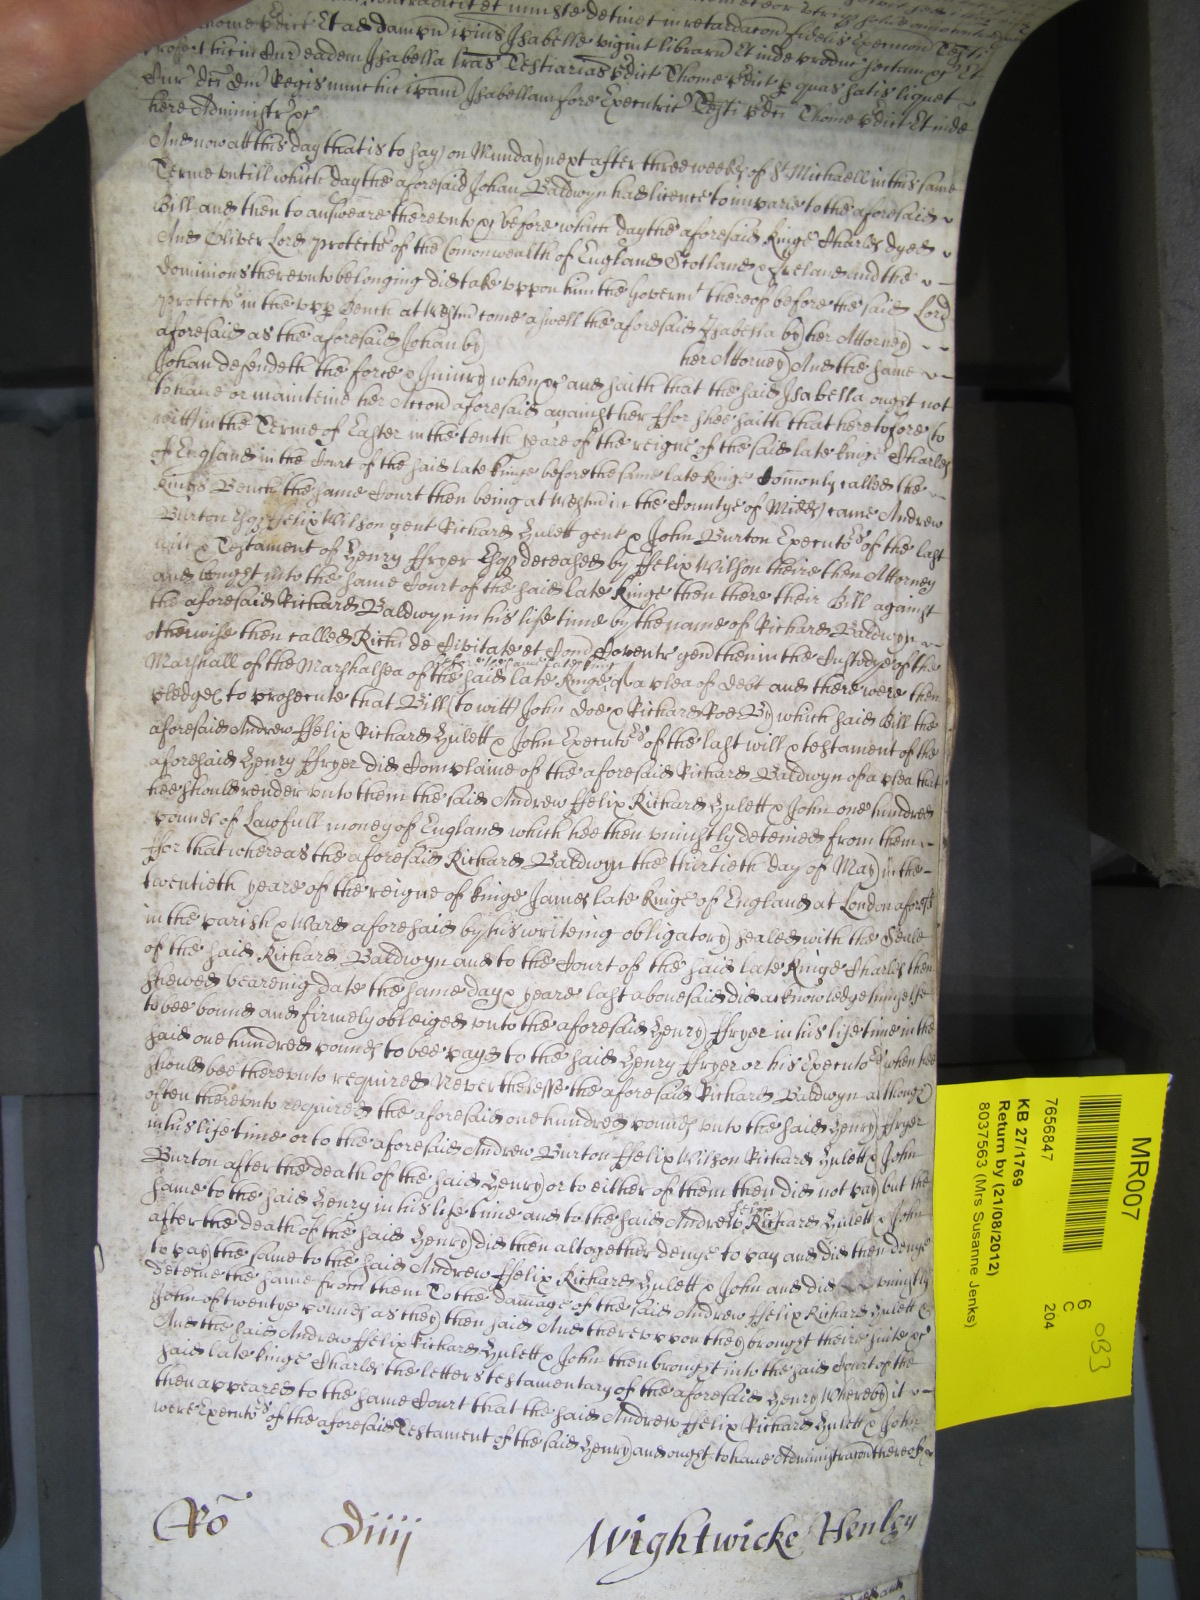 contradicit et iniuste detinet in retardacon fidelis Execucon Testi
Thome pdict Et ad dampn ipius Isabelle vigint librarum Et inde produc sectam &c Et
profert hic in Cur eadem Isabella lras Testtarias pdict Thome pdict p quas satis liquet
Cur dci Dni Regis nunc hic ipam Isabellam fore Executric Testi pdci Thome pdict Et inde
here Administr &c
And now att this day that is to say on Munday next after three weekes of St Michaell in this same
Terme untill which day the aforesaid Johan Baldwyn had licence to imparle to the aforesaid
Bill and then to answeare thereunto &c before which day the aforesaid Kinge Charles dyed
And Oliver Lord protector of the Comonwealth of England Scotland & Ireland and the
dominions thereunto belonging did take uppon him the Governt thereof before the said Lord
protector in the upp Bench at Westm come aswell the aforesaid Isabella by her Attorney
aforesaid as the aforesaid Johan by her Attorney And the same
Johan defendeth the force & Iniury when &c and saith that the said Isabella ought not
to have or mainteine her Accon aforesaid against her ffor shee saith that heretofore to
witt in the Terme of Easter in the tenth yeare of the reigne of the said late Kinge Charles
of England in the Court of the said late Kinge before the same late Kinge Comonly called the
Kings Bench the same Court then being at Westm in the Countye of Midd came Andrew
Burton Esqr ffelix Wilson gent Richard Hulett gent & John Burton Executors of the last
will & Testament of Henry ffryer Esqr deceased by ffelix Wilson theire then Attorney
and brought into the same Court of the said late Kinge then there their Bill against
the aforesaid Richard Baldwyn in his life time by the name of Richard Baldwyn
otherwise then called Richi de Civitate et Com Coventr gen then in the Custodye of the
Marshall of the Marshalsea of the said late Kinge before the same late king of a plea of debt and there were then
pledges to prosecute that Bill (to witt) John Doe & Richard Roe By which said Bill the
aforesaid Andrew ffelix Richard Hulett & John Executors of the last will & testament of the
aforesaid Henry ffryer did Complaine of the aforesaid Richard Baldwyn of a plea that
hee should render unto them the said Andrew ffelix Richard Hulett & John one hundred
pounds of Lawfull money of England which hee then uniustly deteined from them
ffor that whereas the aforesaid Richard Baldwyn the thirtieth day of May in the
twentieth yeare of the reigne of Kinge James late Kinge of England at London aforesd
in the parish & Ward aforesaid by his writeing obligatory sealed with the Seale
of the said Richard Baldwyn and to the Court of the said late Kinge Charles then
shewed beareing date the same day & yeare last abovesaid did acknowledge himselfe
to bee bound and firmely obleiged unto the aforesaid Henry ffryer in his life time in the
said one hundred pounds to bee payd to the said Henry ffryer or his Executors when hee
should bee thereunto required Neverthelesse the aforesaid Richard Baldwyn although
often thereunto required the aforesaid one hundred pounds unto the said Henry ffryer
in his life time or to the aforesaid Andrew Burton ffelix Wilson Richard Hulett & John
Burton after the death of the said Henry or to either of them then did not pay but the
same to the said Henry in his life time and to the said Andrew ffelix Richard Hulett & John
after the death of the said Henry did then altogether denye to pay and did then denye
to pay the same to the said Andrew ffelix Richard Hulett & John and did uniustly
deteine the same from them To the damage of the said Andrew ffelix Richard Hulett &
John of twentye pounds as they then said And thereuppon they brought theire suite &c
And the said Andrew ffelix Richard Hulett & John then brought into the said Court of the
said late Kinge Charles the letters testamentary of the aforesaid Henry Whereby it
then appeared to the same Court that the said Andrew ffelix Richard Hulett & John
were Executors of the aforesaid Testament of the said Henry and ought to have Administracon thereof
Ro Diiij Wightwicke Henley
MR007
6
C
204
033
7656847
KB 27/1769
Return by (21/08/2012)
8037563 (Mrs Susanne Jenks)